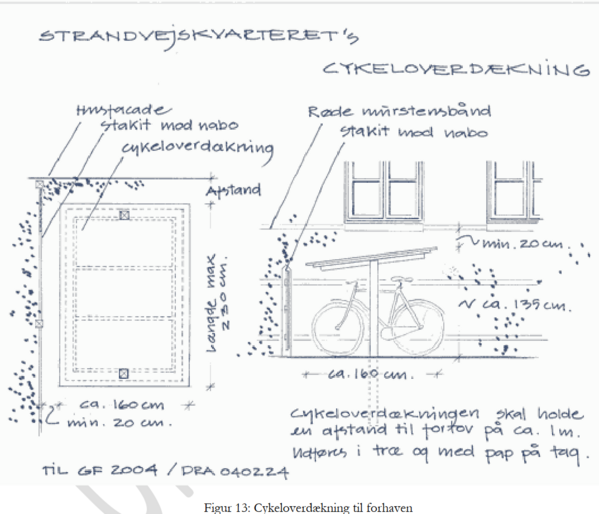 STRANDVEJSKVARTERET's
CYKELOVERDÆKNING
Husfacade
stakit mod nabo
cykeloverdækning
Afstand
Længde max
230 cm.
ca. 160 cm
min. 20 cm.
Røde mürstensbånd
stakit mod nabo
min. 20 cm.
ca. 135 cm.
ca. 160 cm.
Cykeloverdækningen skal holde
en afstand til fortov på ca. 1m.
Udføres i træ og med pap på tag.
TIL GF 2004 / DRA 040224
Figur 13: Cykeloverdækning til forhaven